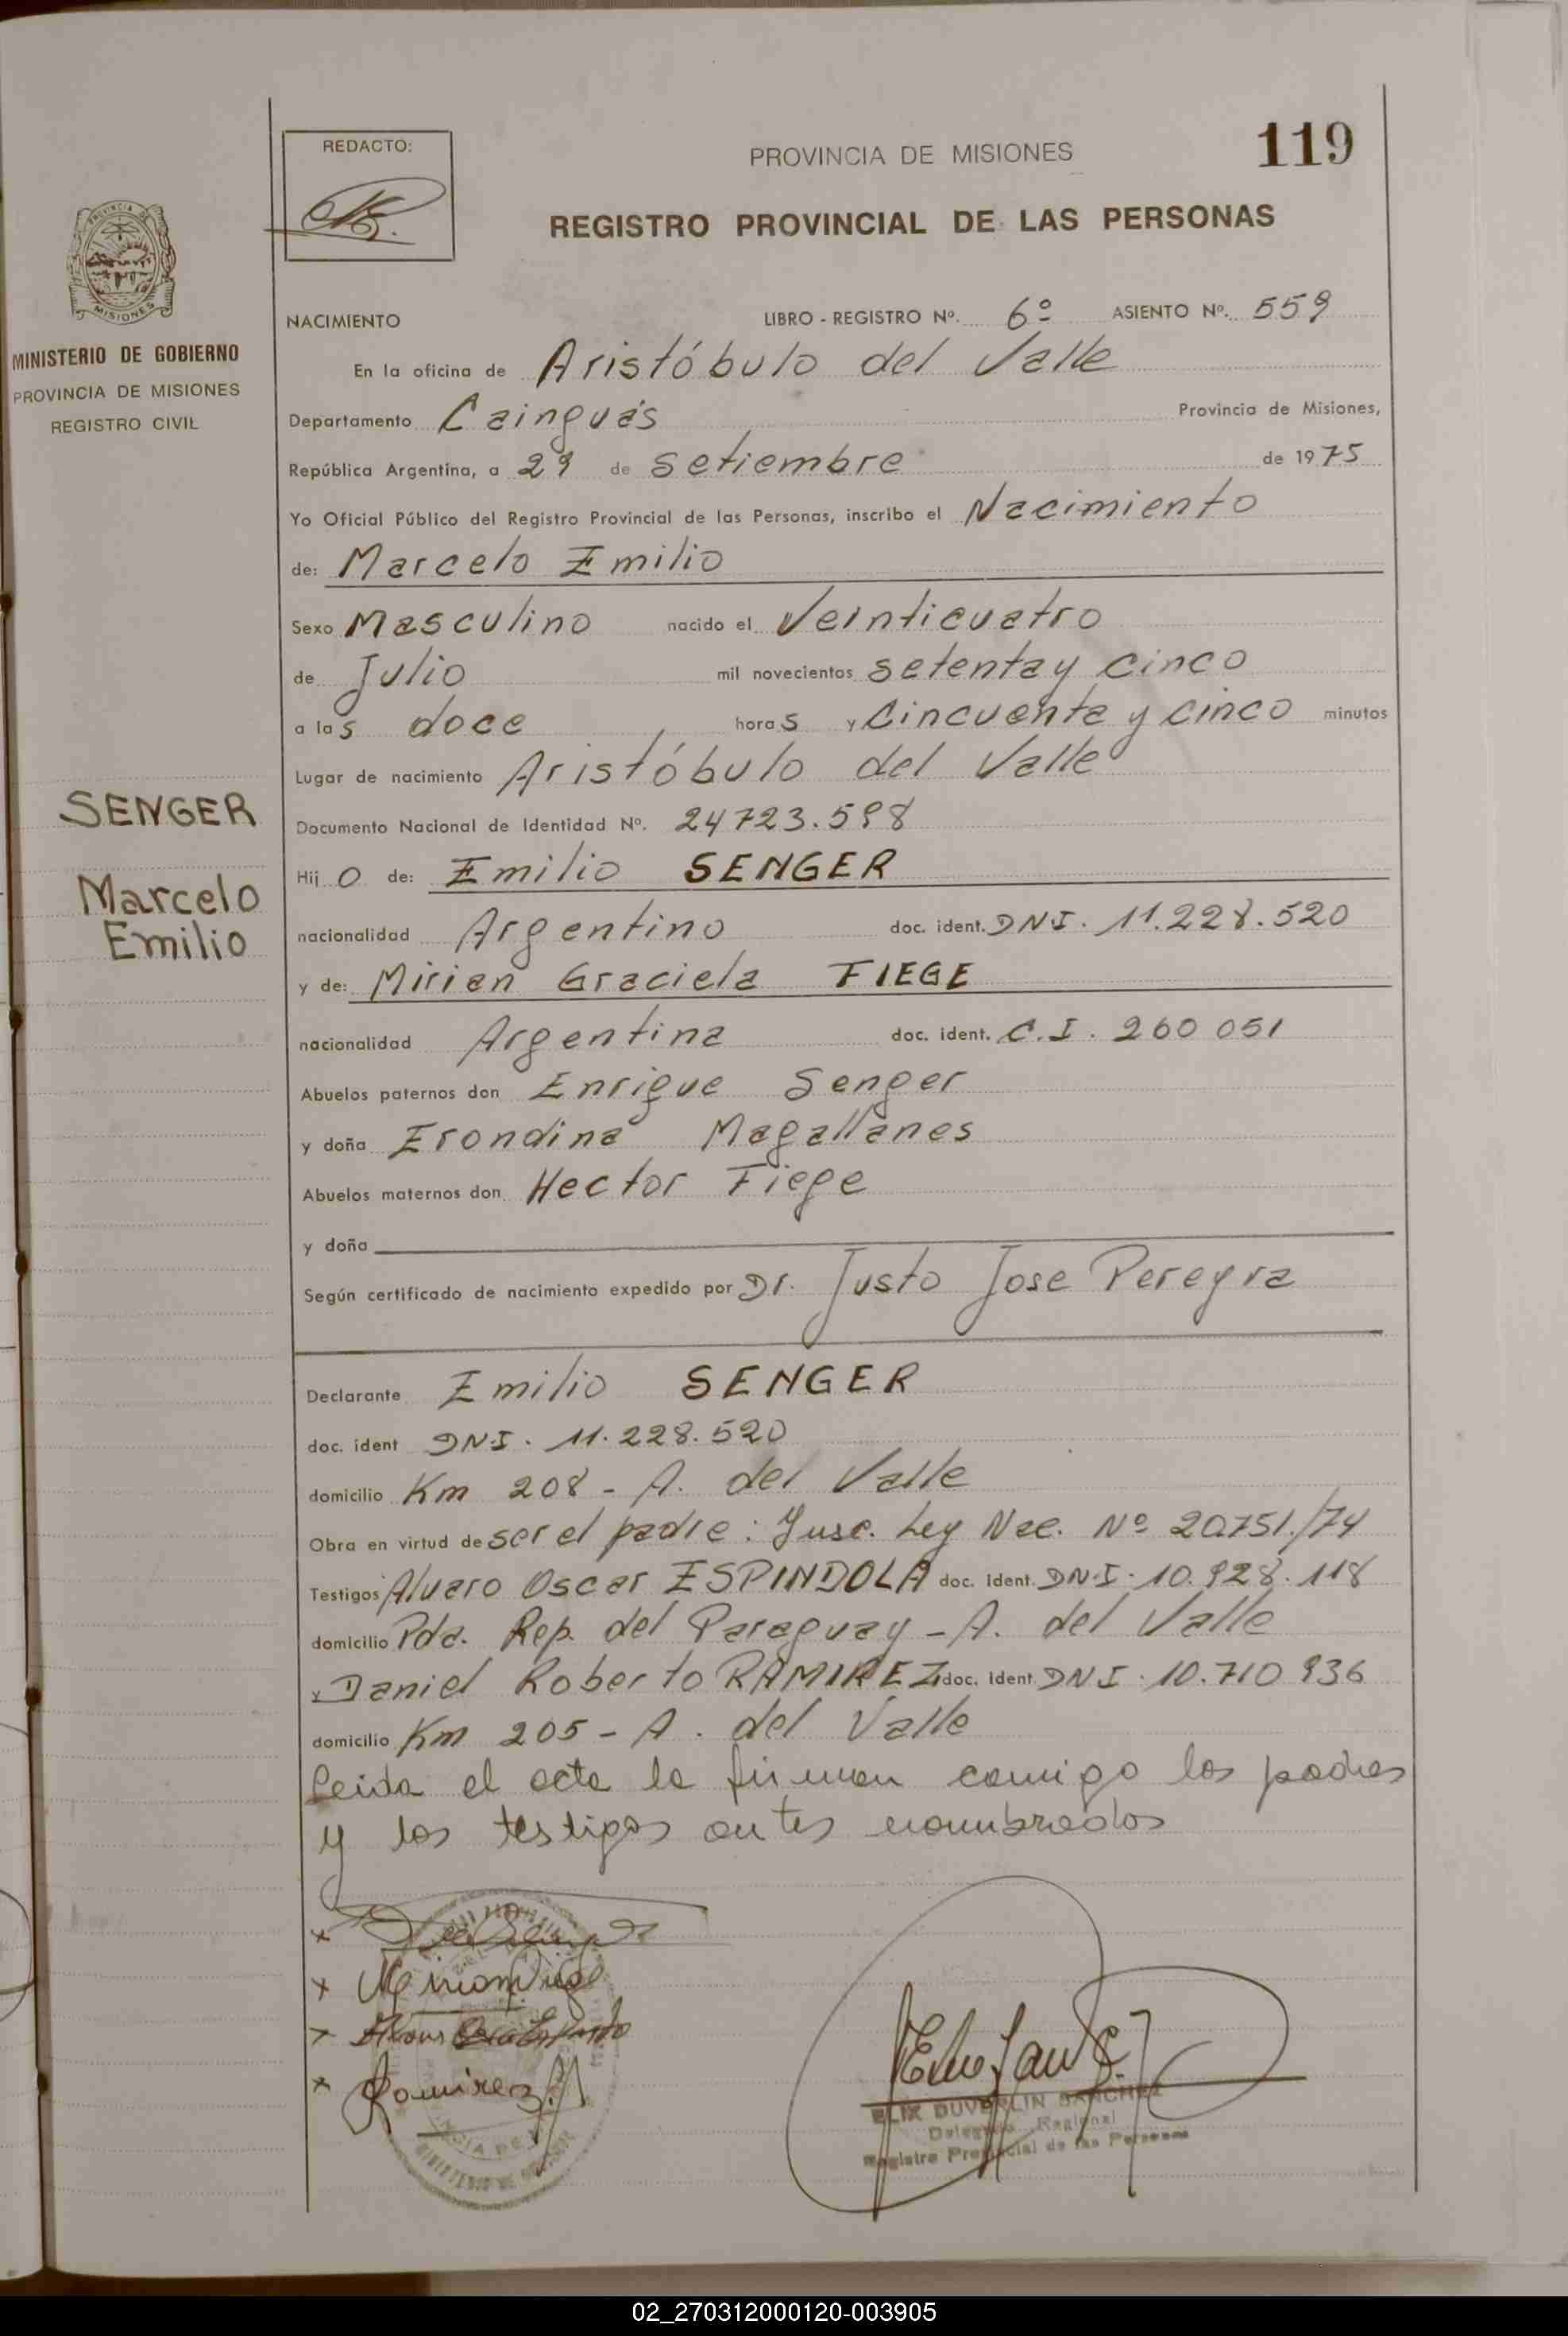 119
REDACTO:
PROVINCIA DE MISIONES
REGISTRO PROVINCIAL DE LAS PERSONAS
MISIONES
MINISTERIO DE GOBIERNO
PROVINCIA DE MISIONES
REGISTRO CIVIL
NACIMIENTO LIBRO - REGISTRO Nº. 6º ASIENTO Nº. 559
En la oficina de Aristóbulo del Valle
Departamento Cainguás Provincia de Misiones,
República Argentina, a 29 de Setiembre de 1975
Yo Oficial Público del Registro Provincial de las Personas, inscribo el Nacimiento
de: Marcelo Emilio
Sexo Masculino nacido el Veinticuatro
de Julio mil novecientos setenta y cinco
a las doce horas y Cincuenta y cinco minutos
Lugar de nacimiento Aristóbulo del Valle
SENGER
Marcelo
Emilio
Documento Nacional de Identidad Nº. 24723.598
Hijo de: Emilio SENGER
nacionalidad Argentino doc. ident. DNI. 11.228.520
y de: Mirian Graciela FIEGE
nacionalidad Argentina doc. ident. C.I. 260 051
Abuelos paternos don Enrique Senger
y doña Erondina Magallanes
Abuelos maternos don Hector Fiege
y doña
Según certificado de nacimiento expedido por Dr. Justo Jose Pereyra
Declarante Emilio SENGER
doc. ident DNI. 11.228.520
domicilio Km 208 - A. del Valle
Obra en virtud de ser el padre: Ley Nac. Nº 20.751./74
Testigos Alvaro Oscar ESPINDOLA doc. ident. DNI. 10.928.118
domicilio Pda. Rep. del Paraguay - A. del Valle
y Daniel Roberto RAMIREZ doc. ident DNI. 10.710 936
domicilio Km 205 - A. del Valle
Leida el acta la firman comigo los padres
y los testigos antes nombrados
Ramirez
ELIX DUVERLIN SANCHEZ
Delegado Regional
Registro Provincial de las Personas
02_270312000120-003905